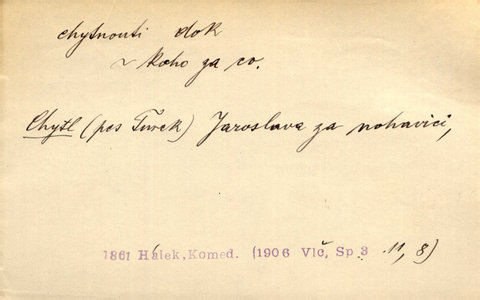 chytnouti dok
~ koho za co.
Chytl (pes Turek) Jaroslava za nohavici,
1861 Hálek, Komed. (1906 Vlč, Sp 3 11, 8)